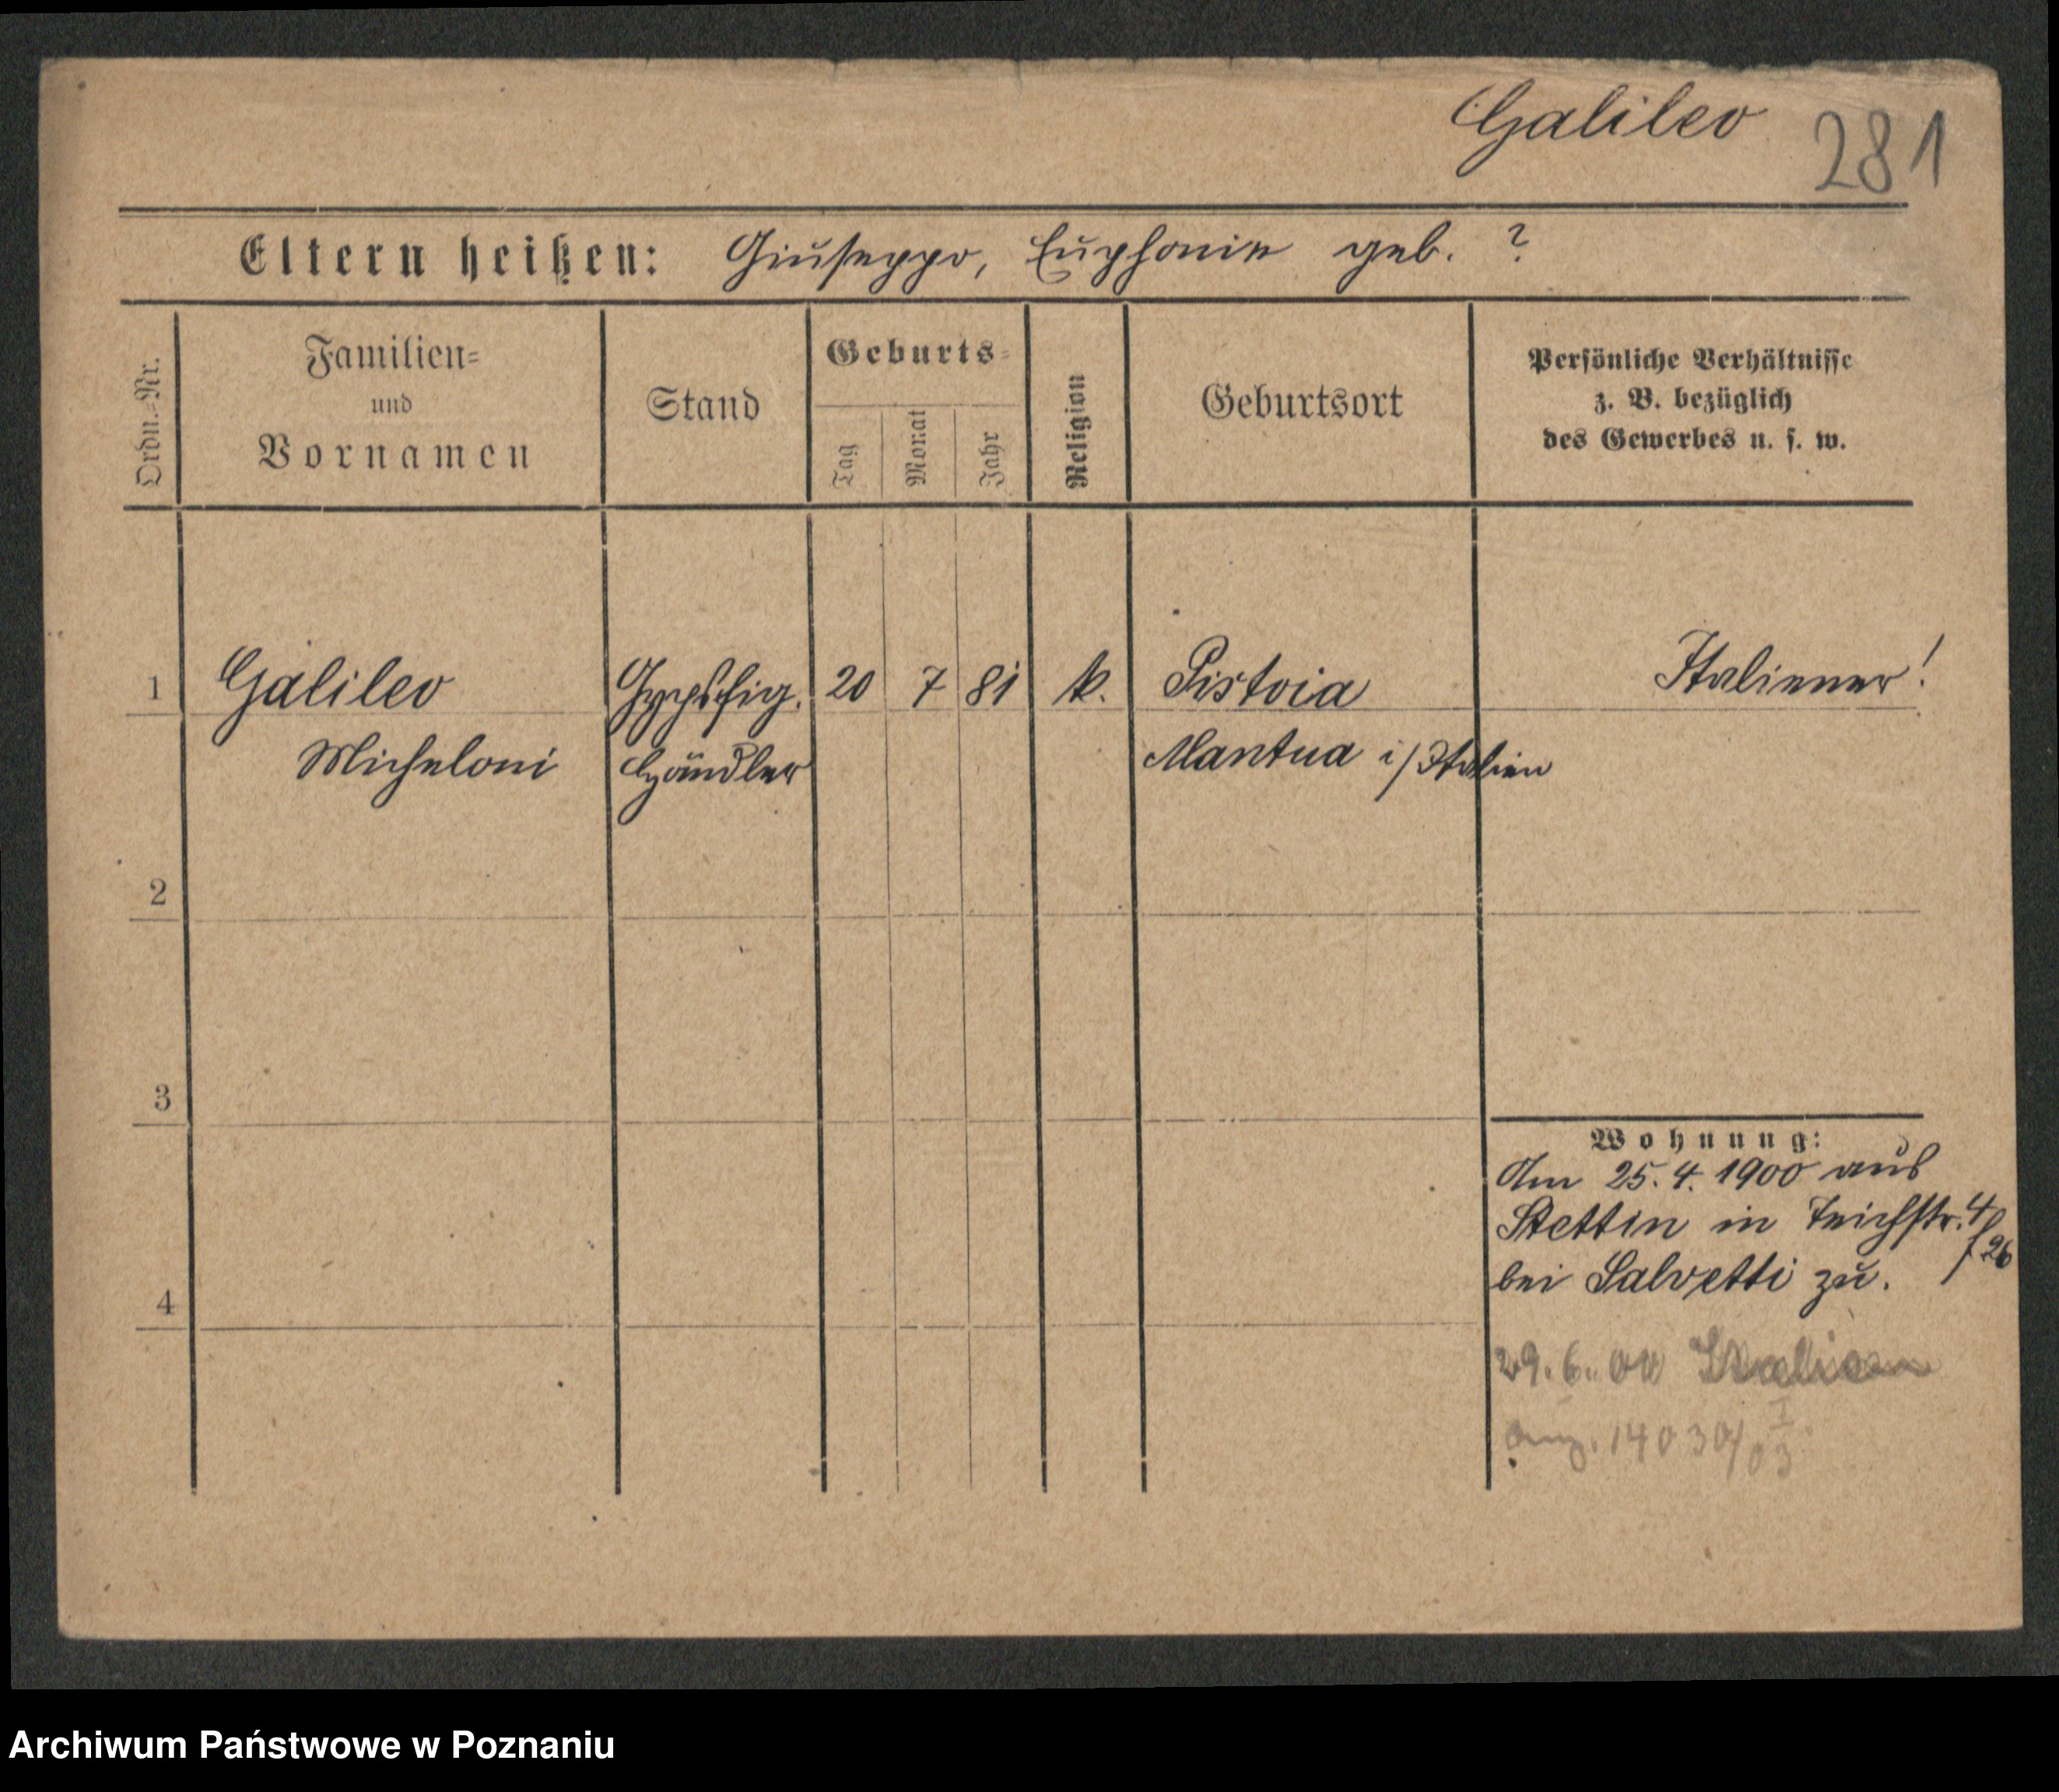 Galileo 281
Eltern heißen: Giuseppo, Euphonie geb. ?
Ordn.-Nr.
Familien-
und
Vornamen
Stand
Geburts-
Tag
Monat
Jahr
Religion
Geburtsort
Persönliche Verhältnisse
z. B. bezüglich
des Gewerbes u. s. w.
1 Galileo Gypsfig. 20 7 81 k. Pistoia Italiener!
Micheloni Händler Mantua i/Italien
2
3
4
Wohnung:
Am 25.4.1900 aus
Stettin in Teichstr. 4
bei Salvetti zu. /26
29.6.00 Italien
ang. 14030/03 I
Archiwum Państwowe w Poznaniu